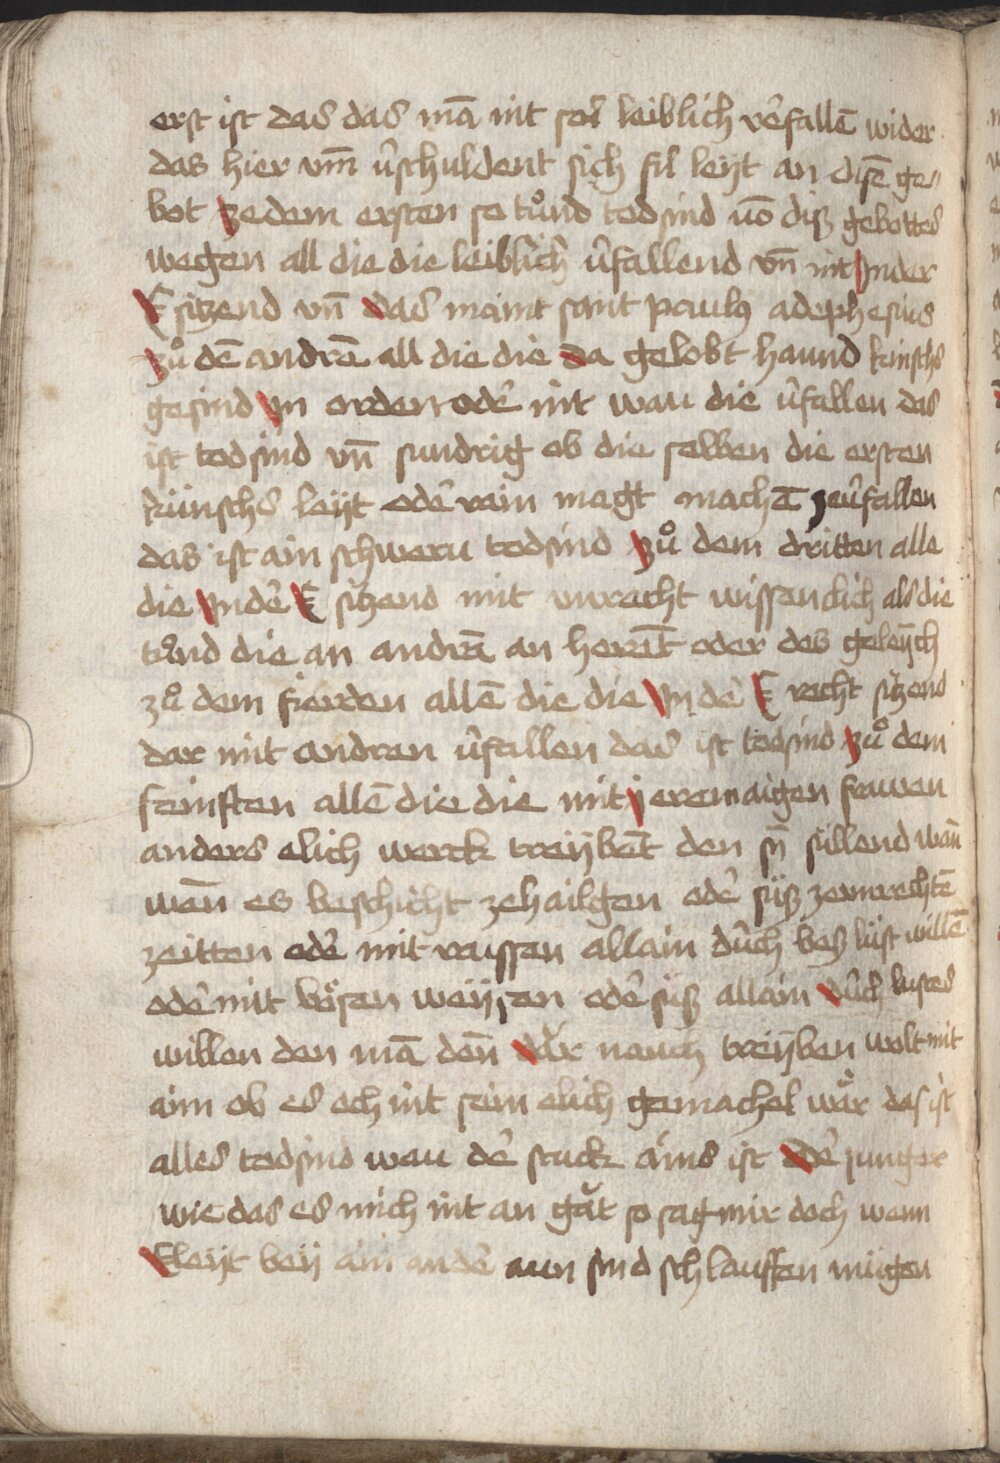 erst ist das das mā nit sol leiblich v̾fallē wider
das hier vm̄ v̾schuldent sich fil leyt an disē ge„
bot zedem ersten so tůnd todsind vō diß gebottes
wegen all die die leiblich v̾fallend vn̄ nit jnder
E siczend vn̄ das maint sant paulus adephesius
zů dē andrē all die die da gelobt haund keinschs
gesind jn orden od̾ nit wau die v̾fallen das
ist todsind vn̄ sundrig ob die selben die ersten
künschs leyt od̾ rain magt machē zev̾fallen
das ist ain schweru todsind zů dem dritten alle
die jnd̾ E siczend mit vnracht wissenclich als die
tůnd die an andrā an herēt oder des geleych
zů dem fierden allē die die jn d̾ E racht siczend
dar mit andren v̾fallen das ist todsind zů dem
feinften allē die die mit jeren aigen frawen
anders elich werck treybēt den sy̅ süllend wan̄
wen̄ es beschicht zehailgen od̾ süß zeunrechtē
zeitten od̾ mit raissen allain durch bes lüst willē
od̾ mit bösen weyssen od̾ süß allain durch lustes
willen den mā den̄ dar nauch treyben wolt mit
aim ob es och nit sein elich gemachel wär das ist
alles todsind wau d̾ stuck ains ist Der junger
wie das es mich nit an gät so sag mir doch wenn
Eleyt bey ain and̾ aun sind schlauffen mügen